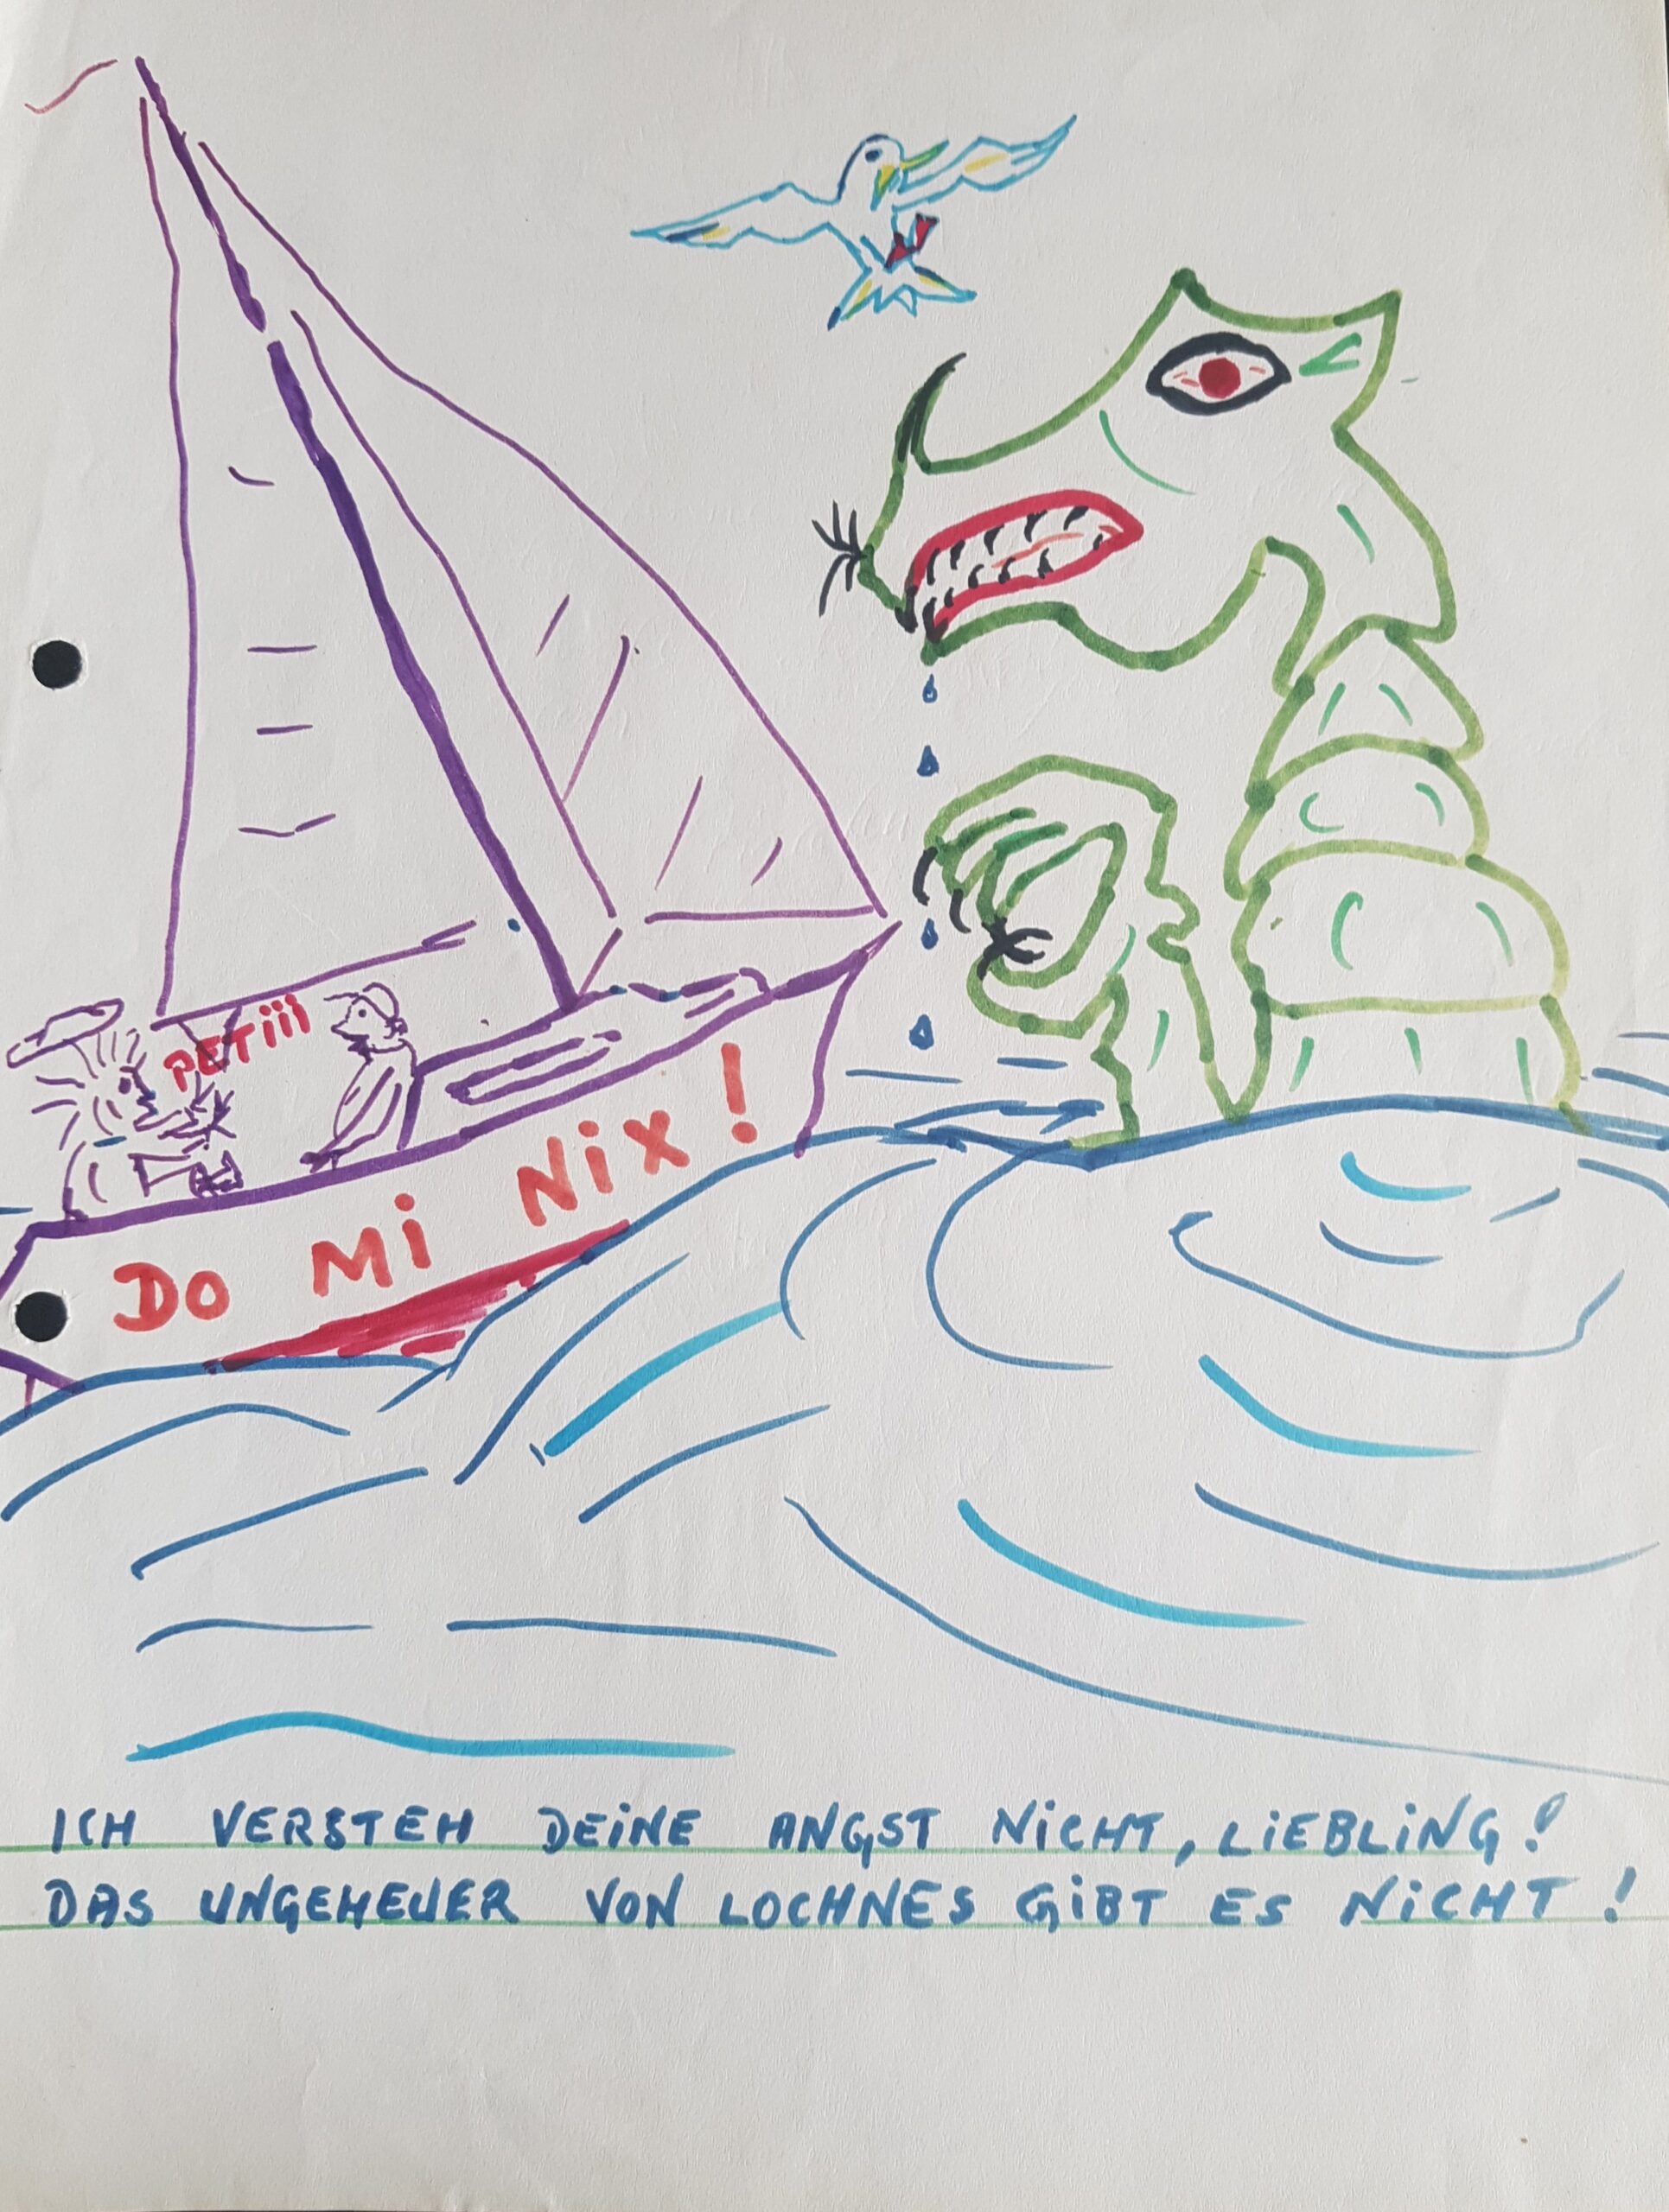 PETiii
DO Mi NiX!
ICH VERSTEH DEiNE ANGST NiCHT, LiEBLiNG!
DAS UNGEHEUER VON LOCHNES GiBT ES NiCHT!